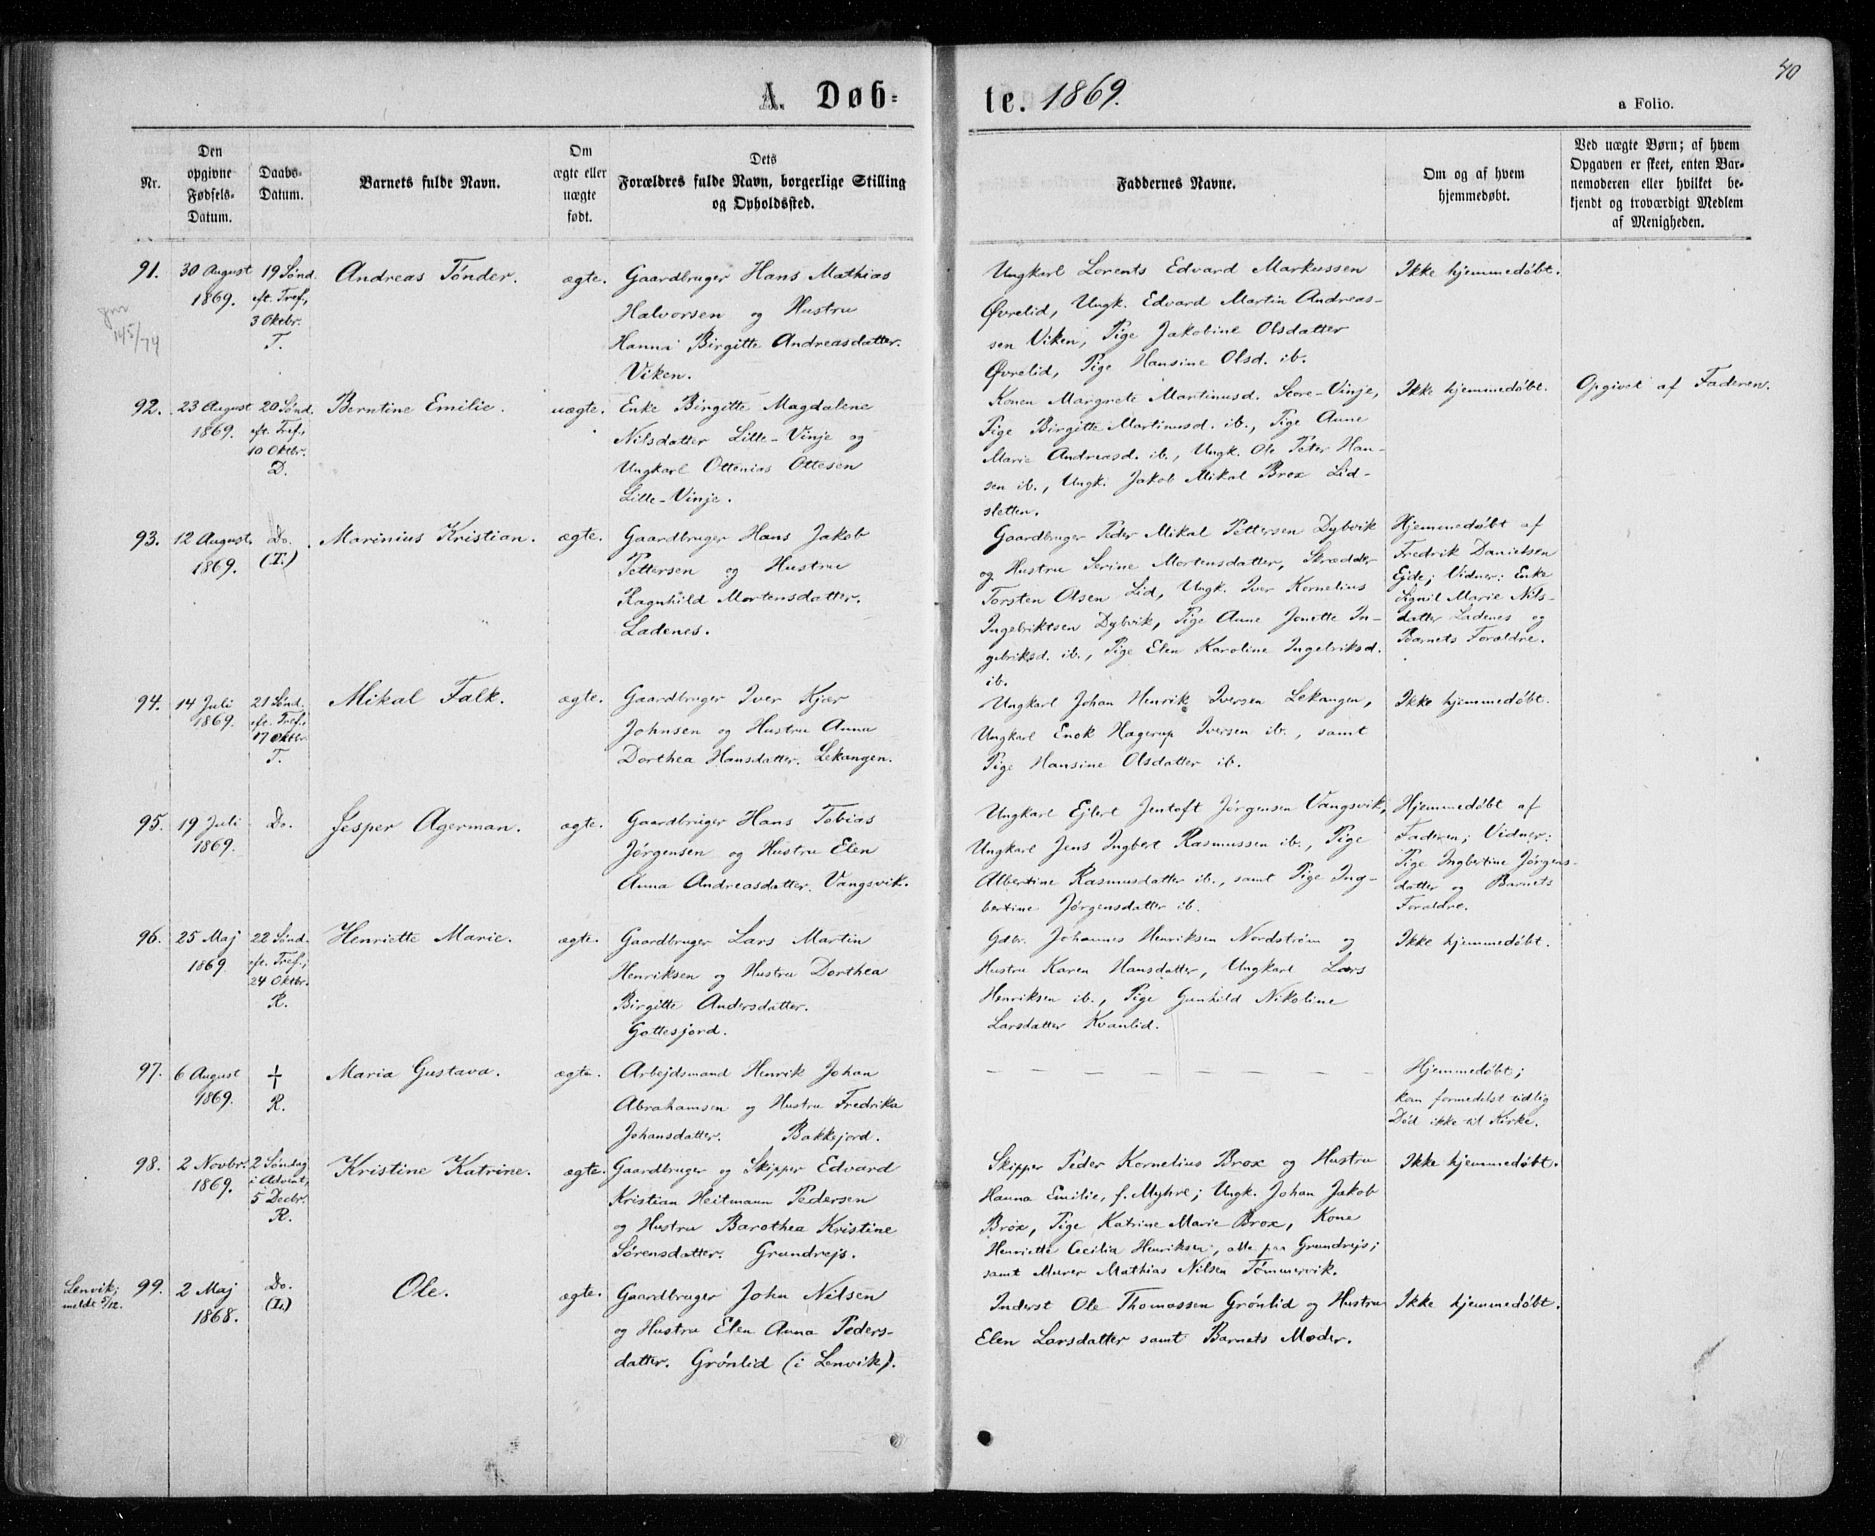 40
A. Døb=
te. 1869.
a Folio.
Nr.
Den
opgivne
Fødsels-
Datum.
Daabs-
Datum.
Barnets fulde Navn.
Om
ægte eller
uægte
født.
Dets
Forældres fulde Navn, borgerlige Stilling
og Opholdssted.
Faddernes Navne.
Om og af hvem
hjemmedøbt.
Ved uægte Børn; af hvem
Opgaven er skeet, enten Bar-
nemoderen eller hvilket be-
kjendt og troværdigt Medlem
af Menigheden.
91.
30 August
1869.
19 Sønd.
eft. Tref.,
3 Oktbr.
T.
Andreas Tønder.
ægte.
Gaardbruger Hans Mathias
Halvorsen og Hustru
Hanna Birgitte Andreasdatter.
Viken.
Ungkarl Lorents Edvard Markussen
Øvrelid, Ungk. Edvard Martin Andreas-
sen Viken, Pige Jakobine Olsdatter
Øvrelid, Pige Hansine Olsd. ib.
Ikke hjemmedøbt.
14/5/74
92.
23 August
1869.
20 Sønd.
eft. Tref.,
10 Oktbr.
D.
Berntine Emilie.
uægte.
Enke Birgitte Magdalene
Nilsdatter Lille-Vinje og
Ungkarl Ottenias Ottesen
Lille-Vinje.
Konen Margrete Martinusd. Store-Vinje,
Pige Birgitte Martinusd. ib., Pige Anne
Marie Andreasd. ib., Ungk. Ole Peter Han-
sen ib., Ungk. Jakob Mikal Brox Lid-
sletten.
Ikke hjemmedøbt.
Opgivet af Faderen.
93.
12 August
1869.
Do.
(T.)
Marinius Kristian.
ægte.
Gaardbruger Hans Jakob
Pettersen og Hustru
Ragnhild Mortensdatter.
Ladenes.
Gaardbruger Peder Mikal Pettersen Dybvik
og Hustru Serine Mortensdatter, Skrædder
Torsten Olsen Lid, Ungk. Iver Kornelius
Ingebriktsen Dybvik, Pige Anne Jonette In-
gebriksd. ib., Pige Elen Karoline Ingebriksd.
ib.
Hjemmedøbt af
Fredrik Danielsen
Ejde; Vidner: Enke
Signil Marie Nils-
datter Ladenes og
Barnets Forældre.
94.
14 Juli
1869.
21 Sønd.
eft. Tref.,
17 Oktbr.
T.
Mikal Falk.
ægte.
Gaardbruger Iver Kjær
Johnsen og Hustru Anna
Dorthea Hansdatter. Lekangen.
Ungkarl Johan Henrik Iversen Lekangen,
Ungkarl Enok Hagerup Iversen ib., samt
Pige Hansine Olsdatter ib.
Ikke hjemmedøbt.
95.
19 Juli
1869.
Do.
Jesper Agerman.
ægte.
Gaardbruger Hans Tobias
Jørgensen og Hustru Elen
Anna Andreasdatter. Vangsvik.
Ungkarl Ejlert Jentoft Jørgensen Vangsvik,
Ungkarl Jens Ingbert Rasmussen ib., Pige
Albertine Rasmusdatter ib., samt Pige Ing-
bertine Jørgensdatter ib.
Hjemmedøbt af
Faderen; Vidner:
Pige Ingbertine Jørgens-
datter og Barnets
Forældre.
96.
25 Maj
1869.
22 Sønd.
eft. Tref.,
24 Oktbr.
R.
Henriette Marie.
ægte.
Gaardbruger Lars Martin
Henriksen og Hustru Dorthea
Birgitte Andersdatter.
Gottesjord.
Gdbr. Johannes Henriksen Nordstrøm og
Hustru Karen Hansdatter, Ungkarl Lars
Henriksen ib., Pige Gunhild Nikoline
Larsdatter Kvanlid.
Ikke hjemmedøbt.
97.
6 August
1869.
†
R.
Maria Gustava.
ægte.
Arbejdsmand Henrik Johan
Abrahamsen og Hustru Fredrika
Johansdatter. Bakkejord.
— — — — — — — —
Hjemmedøbt;
kom formedelst tidlig
Død ikke til Kirke.
98.
2 Novbr.
1869.
2 Søndag
i Advent,
5 Decbr.
R.
Kristine Katrine.
ægte.
Gaardbruger og Skipper Edvard
Kristian Heitmann Pedersen
og Hustru Barothea Kristine
Sørensdatter. Grundrejs.
Skipper Peder Kornelius Brox og Hustru
Hanna Emilie, f. Myhre; Ungk. Johan Jakob
Brox, Pige Katrine Marie Brox, Kone
Henriette Cecilia Henriksen, alle paa Grundrejs;
samt Murer Mathias Nilsen Tømmervik.
Ikke hjemmedøbt.
Lenvik;
meldt 5/12.
99.
2 Maj
1868.
Do.
Ole.
ægte.
Gaardbruger John Nilsen
og Hustru Elen Anna Peders-
datter. Grønlid (i Lenvik).
Inderst Ole Thomassen Grønlid og Hustru
Elen Larsdatter samt Barnets Moder.
Ikke hjemmedøbt.